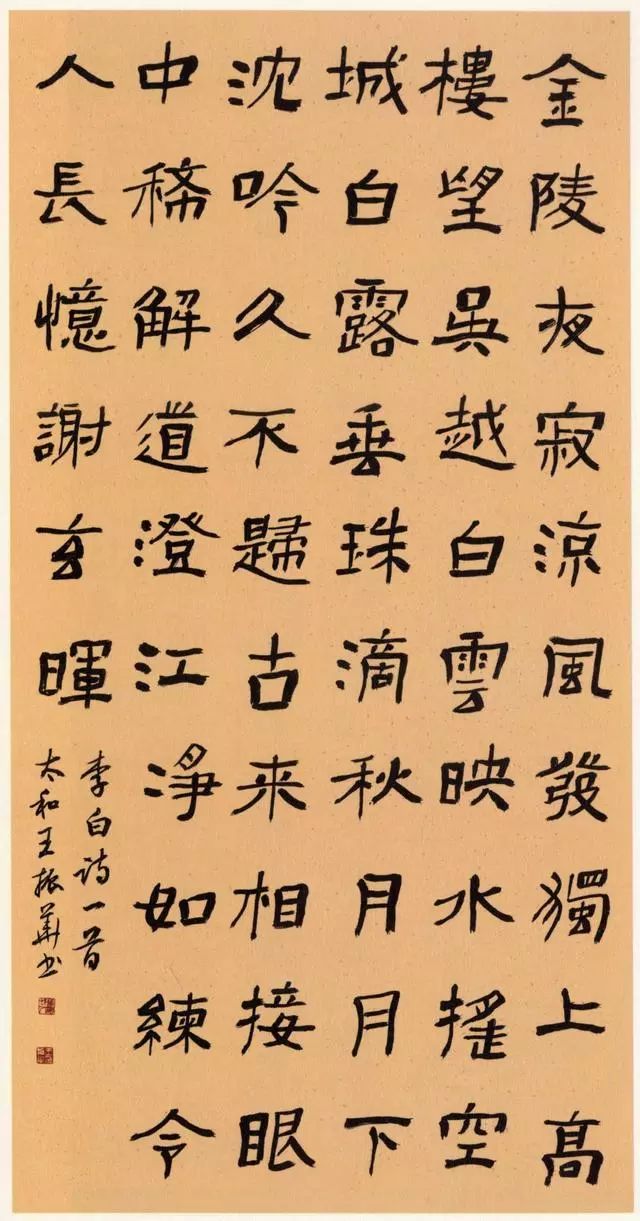 金陵夜寂涼風發獨上高
樓望吳越白雲映水搖空
城白露垂珠滴秋月月下
沈吟久不歸古来相接眼
中稀解道澄江淨如練令
人長憶謝玄暉
李白诗一首
太和王振華书